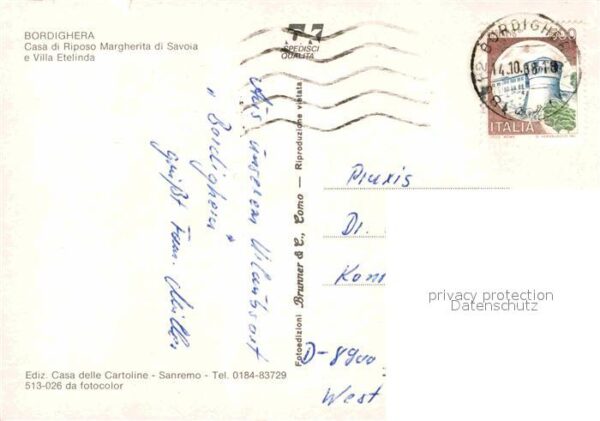 BORDIGHERA
Casa di Riposo Margherita di Savoia
e Villa Etelinda
SPEDISCI
QUALITÀ
BORDIGHE
14.10.88-18
ITALIA
Aus unserem Urlaubsort
"Bordighera"
grüßt Fam. Müller
Fotoedizioni Brunner & C., Como — Riproduzione vietata
Praxis
Dr.
D-8900
West
privacy protection
Datenschutz
Ediz. Casa delle Cartoline - Sanremo - Tel. 0184-83729
513-026 da fotocolor